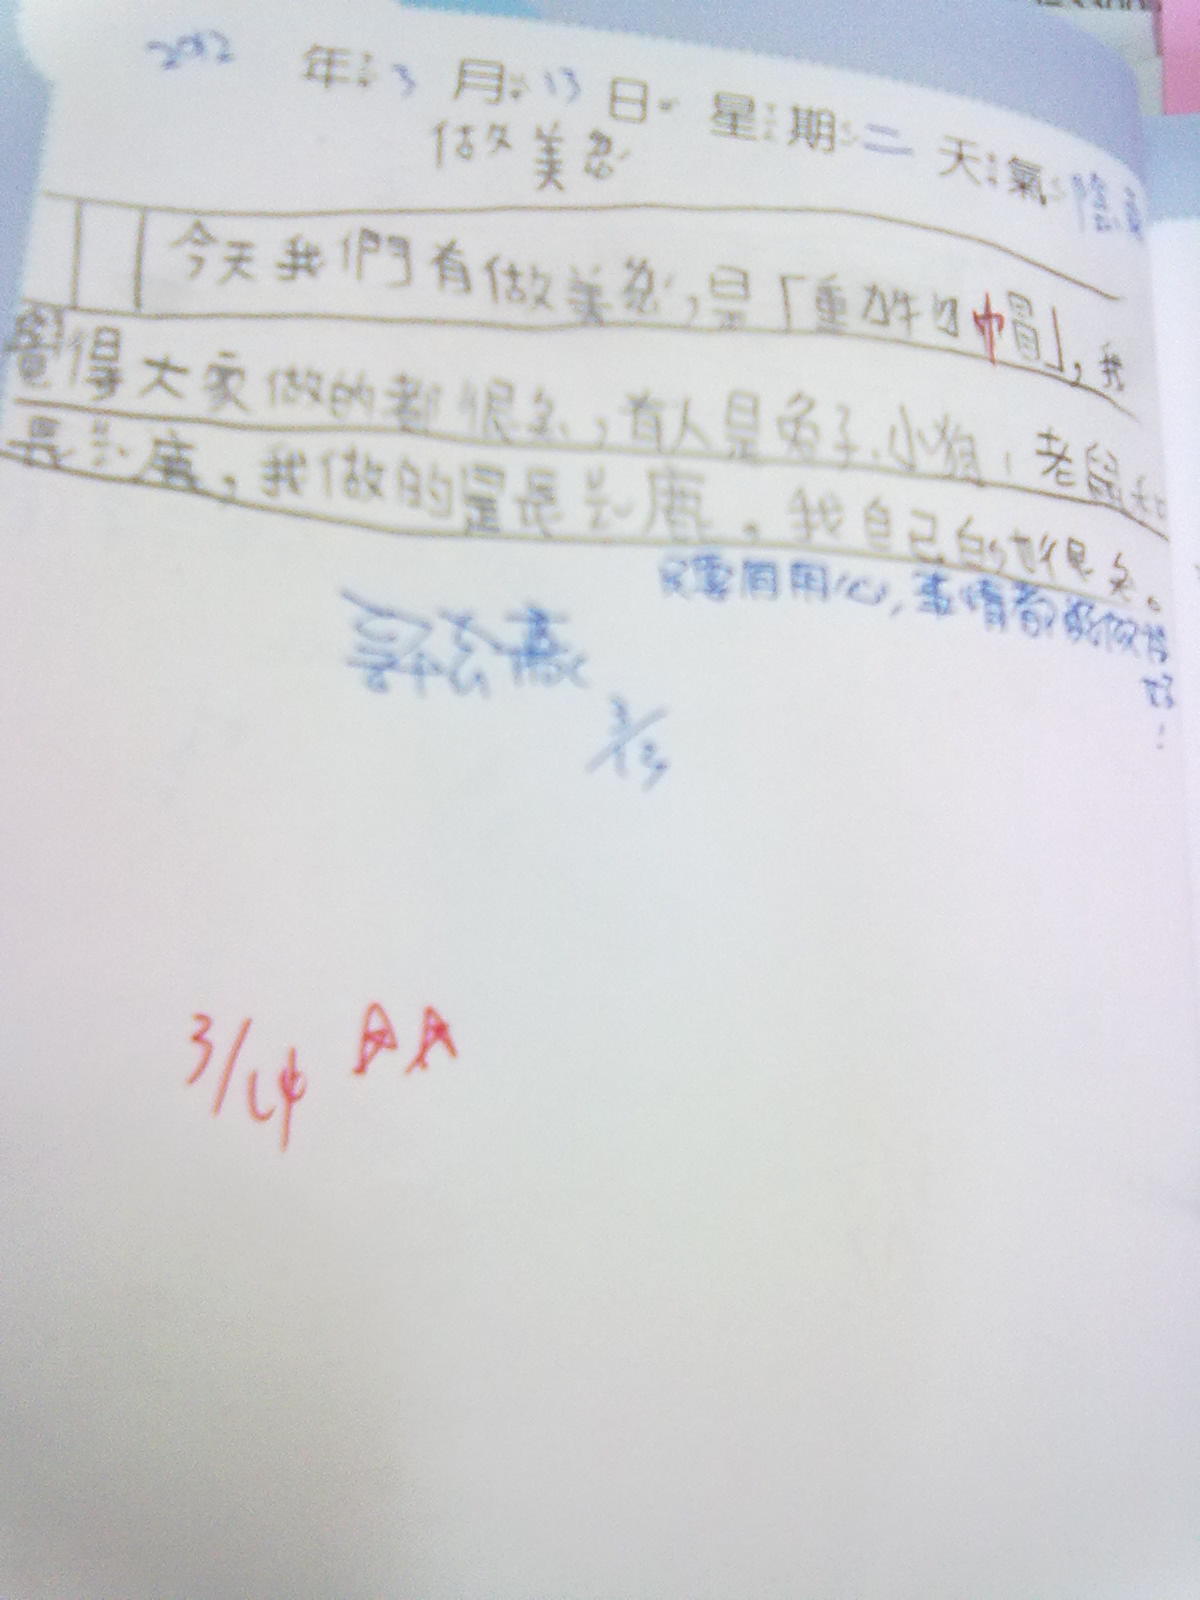 2012年3月13日 星期二 天氣陰
做美勞
今天我們有做美勞,是「動物帽」,我
覺得大家做的都很ㄠ,有人是兔子、小狗、老鼠和
長ㄐㄥ鹿,我做的是長ㄐㄥ鹿。我自己的也很ㄠ。
只要用心,事情都能做得
好!
3/13
3/14 AA